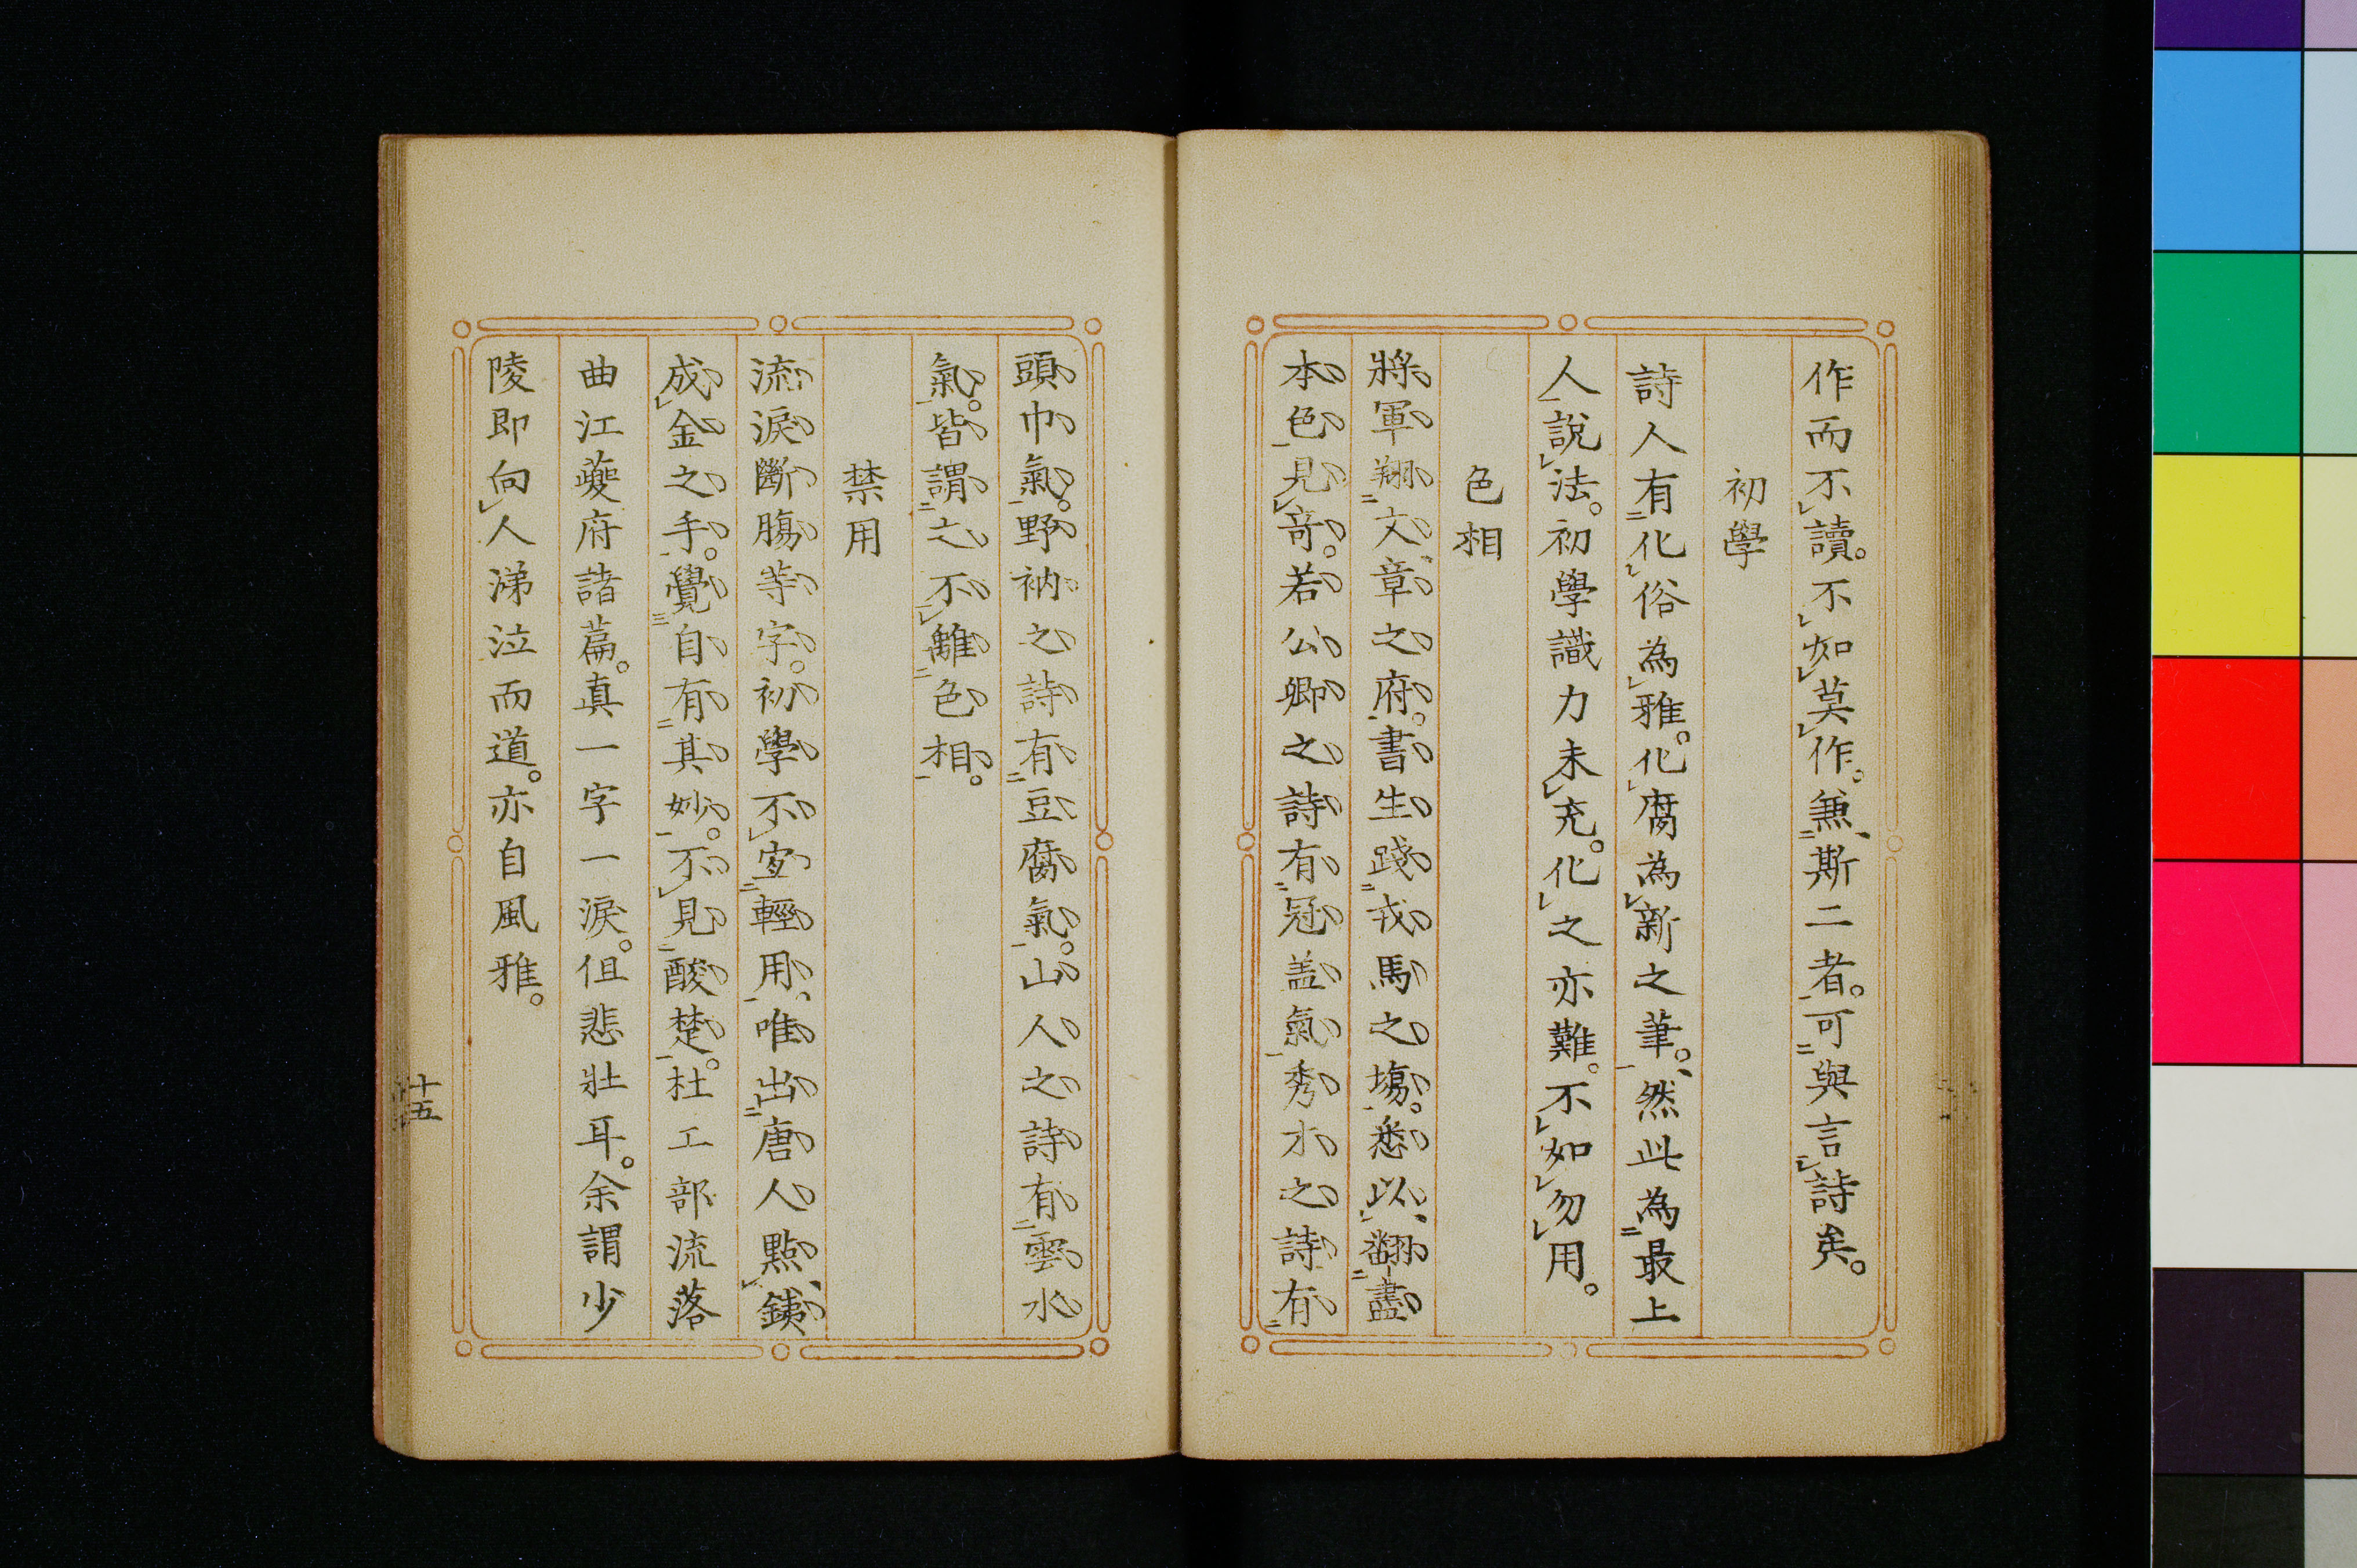 作而不讀。不如莫作。兼斯二者。可與言詩矣。
初學
詩人有化俗為雅。化腐為新之筆。然此為最上
人說法。初學識力未充。化之亦難。不如勿用。
色相
將軍翔文章之府。書生踐戎馬之塲。悉以翻盡
本色見奇。若公卿之詩有冠盖氣秀水之詩有
頭巾氣。野衲之詩有豆腐氣。山人之詩有雲水
氣。皆謂之不離色相。
禁用
流淚斷膓等字。初學不宜輕用。唯出唐人點銕
成金之手。覺自有其妙。不見酸楚。杜工部流落
曲江夔府諸篇。真一字一淚。但悲壯耳。余謂少
陵即向人涕泣而道。亦自風雅。
十五